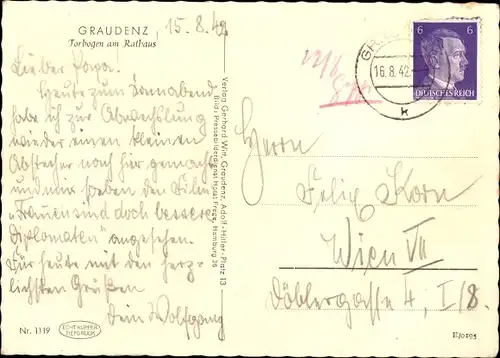 GRAUDENZ, 15.8.42
Torbogen am Rathaus
Lieber Papa!
Heute zum Sonnabend
habe ich zur Abwechslung
wieder einen kleinen
Abstecher nach hier gemacht
und mir soeben den Film
„Frauen sind doch bessere
Diplomaten" angesehen.
Für heute mit den herz-
lichsten Grüßen
Dein Wolfgang
Nr. 1119
ECHT KUPFER-
TIEFDRUCK
Verlag Gerhard Graudenz, Adolf-Hitler-Platz 13
Bild: Pressebilderdienst Horst Hamburg 36
16.8.42
k
6 6
DEUTSCHES REICH
Herrn
Felix Korn
Wien VII
Döblergasse 4, I/8.